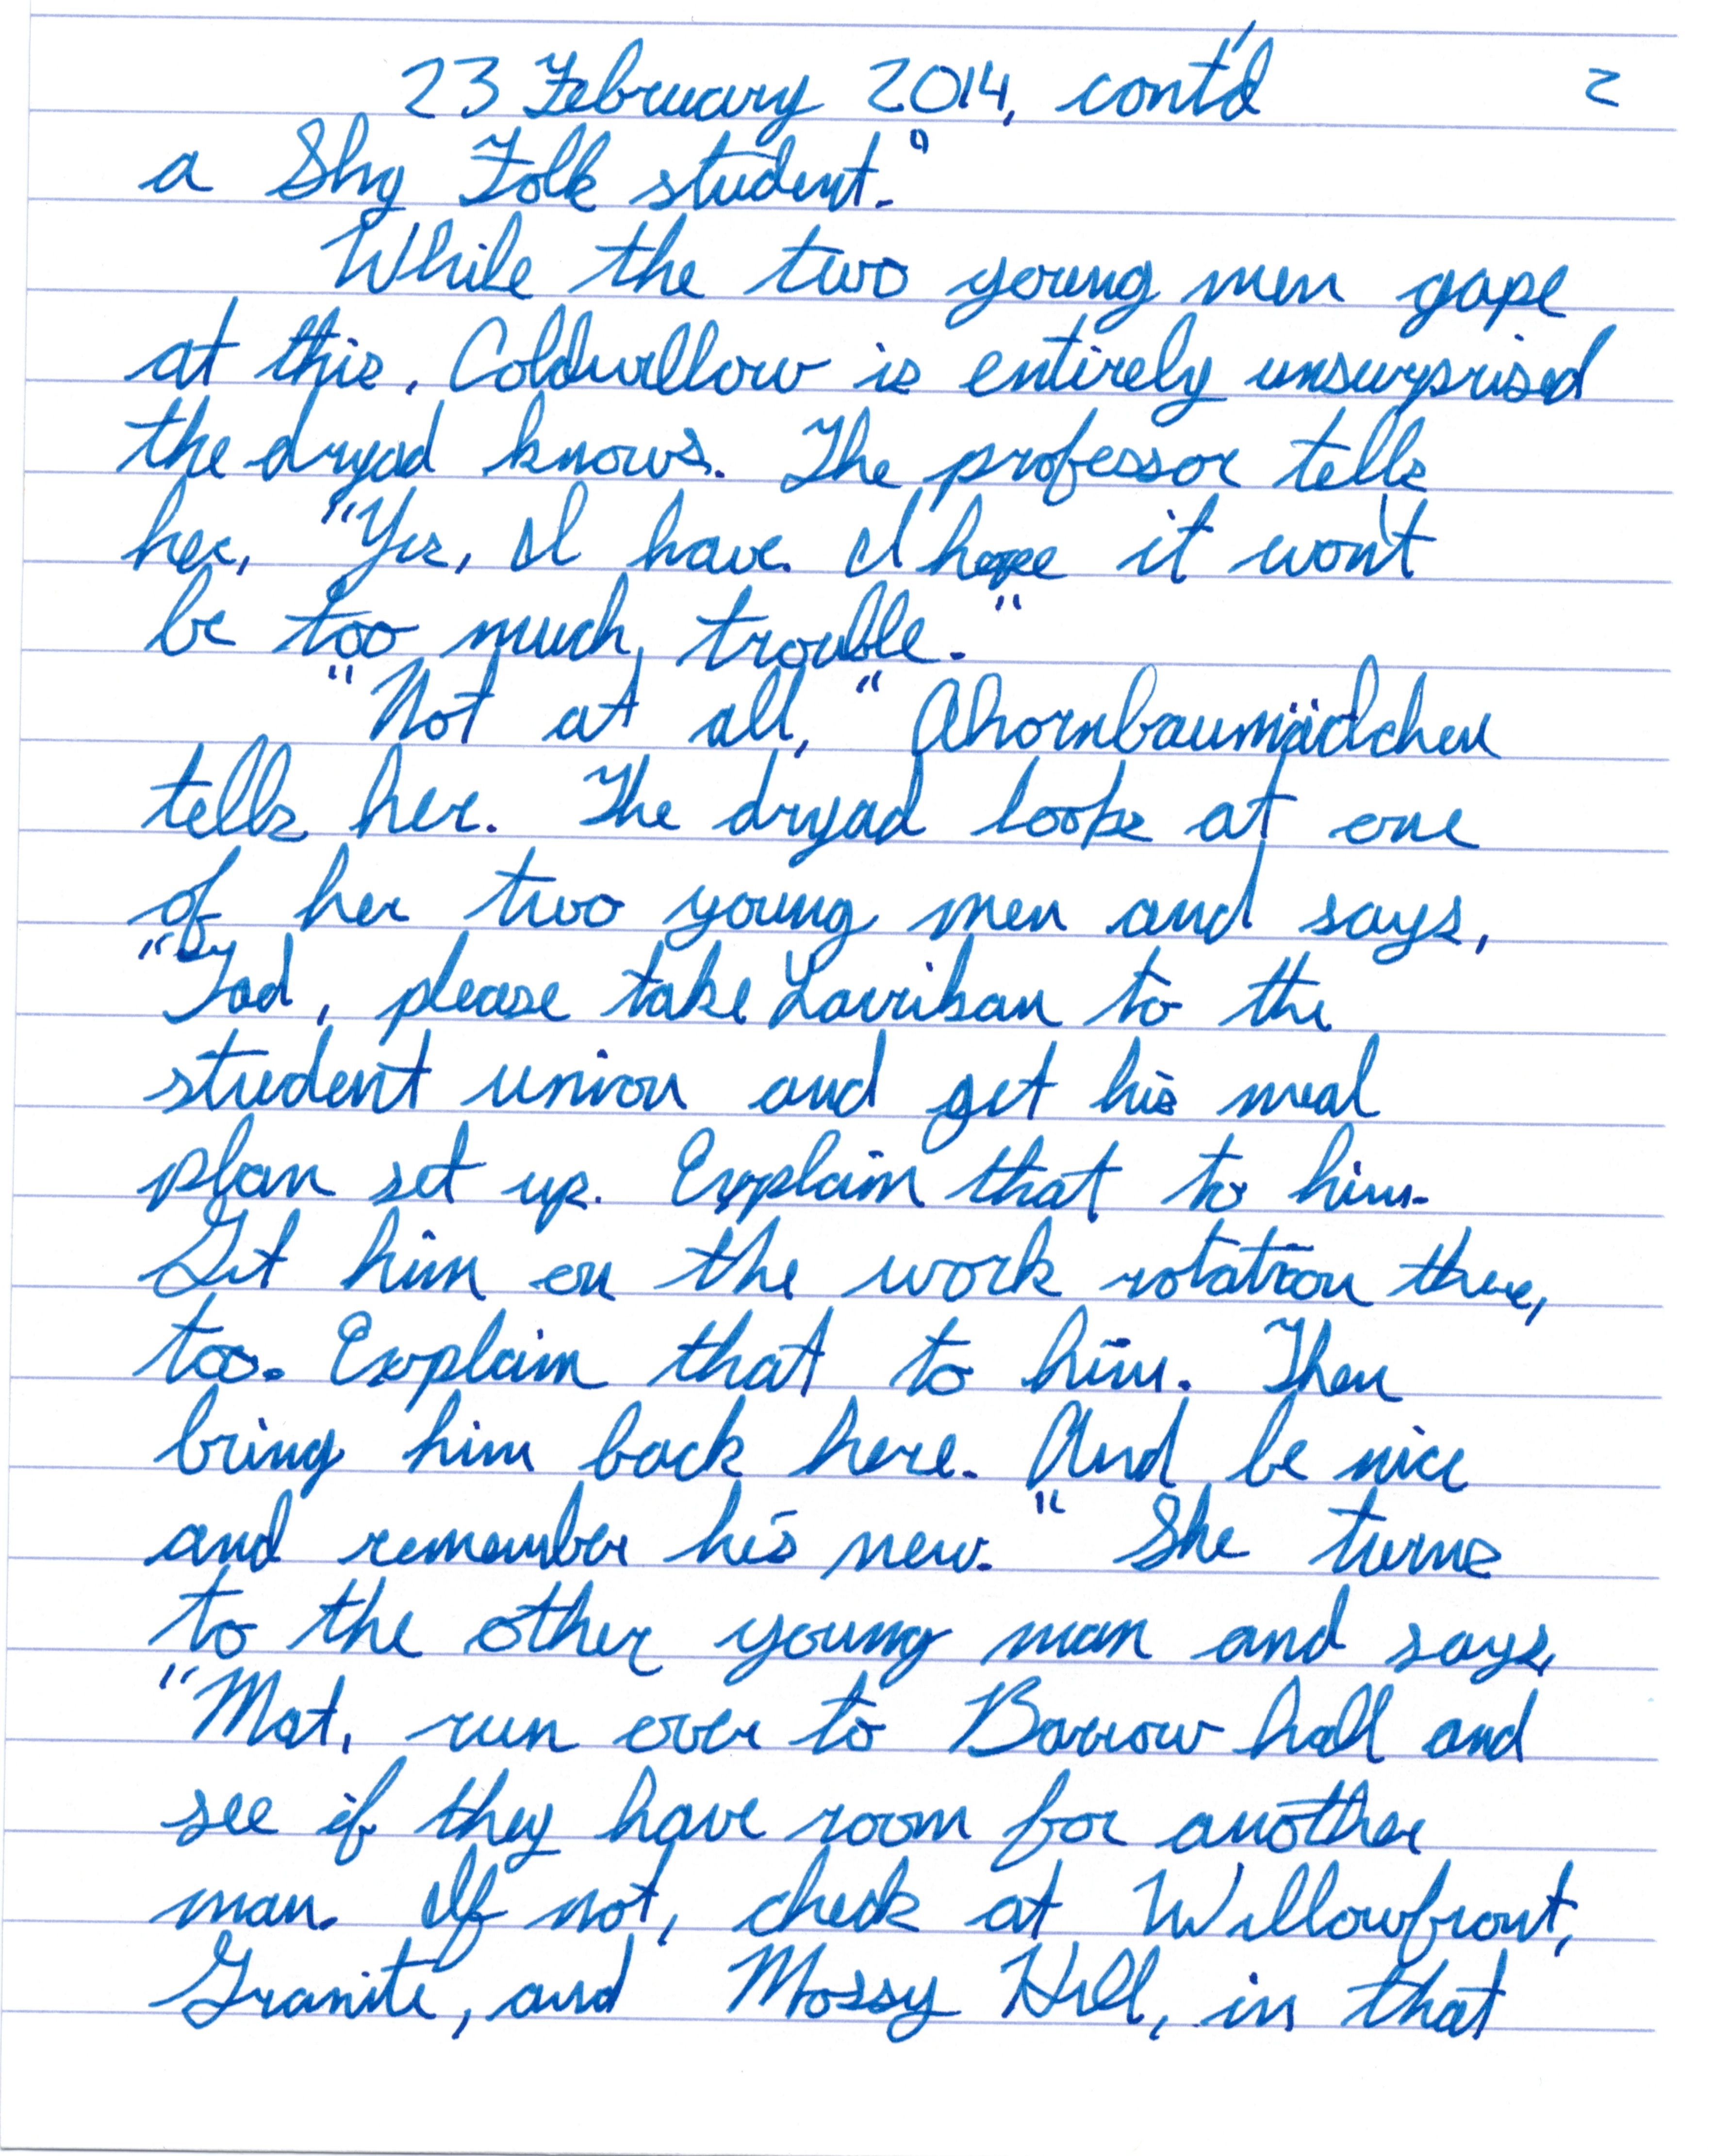 23 February 2014, cont'd 2
a Shy Folk student."
While the two young men gape
at this, Coldwillow is entirely unsurprised
the dryad knows. The professor tells
her, "Yes, I have. I hope it won't
be too much trouble."
"Not at all," Ahornbaumädchen
tells her. The dryad looks at one
of her two young men and says,
"Tad, please take Lavrihan to the
student union and get his meal
plan set up. Explain that to him.
Get him on the work rotation there,
too. Explain that to him. Then
bring him back here. And be nice
and remember he's new." She turns
to the other young man and says,
"Mat, run over to Barrow hall and
see if they have room for another
man. If not, check at Willowfront,
Granite, and Mossy Hill, in that